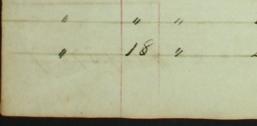 " " "
" 18 "